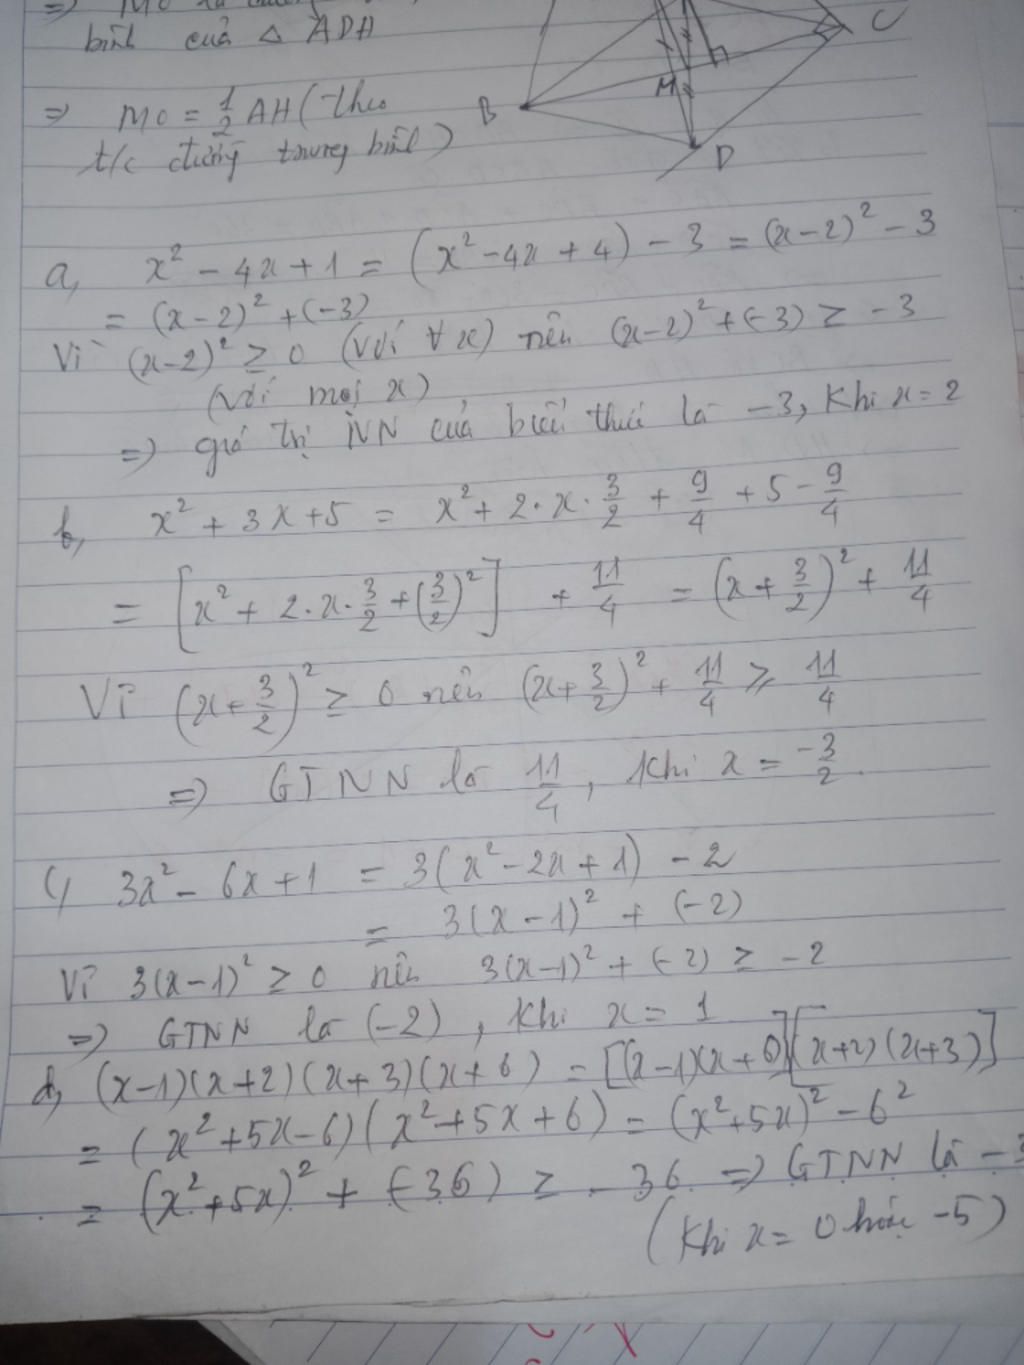 => MO là
bình của △ ADH
=> MO = 1/2 AH (theo
t/c đường trung bình)
B
C
M
D
a, x² - 4x + 1 = (x² - 4x + 4) - 3 = (x-2)² - 3
= (x-2)² + (-3)
Vì (x-2)² ≥ 0 (với ∀ x) nên (x-2)² + (-3) ≥ -3
(với mọi x)
=> giá trị NN của biểu thức là -3, khi x = 2
b, x² + 3x + 5 = x² + 2·x·3/2 + 9/4 + 5 - 9/4
= [x² + 2·x·3/2 + (3/2)²] + 11/4 = (x + 3/2)² + 11/4
Vì (x + 3/2)² ≥ 0 nên (x + 3/2)² + 11/4 ≥ 11/4
=> GTNN là 11/4, khi x = -3/2.
c, 3x² - 6x + 1 = 3(x² - 2x + 1) - 2
= 3(x - 1)² + (-2)
Vì 3(x-1)² ≥ 0 nên 3(x-1)² + (-2) ≥ -2
=> GTNN là (-2), khi x = 1
d, (x-1)(x+2)(x+3)(x+6) = [(x-1)(x+6)][(x+2)(x+3)]
= (x² + 5x - 6)(x² + 5x + 6) = (x² + 5x)² - 6²
= (x² + 5x)² + (-36) ≥ -36 => GTNN là -3
(khi x = 0 hoặc -5)